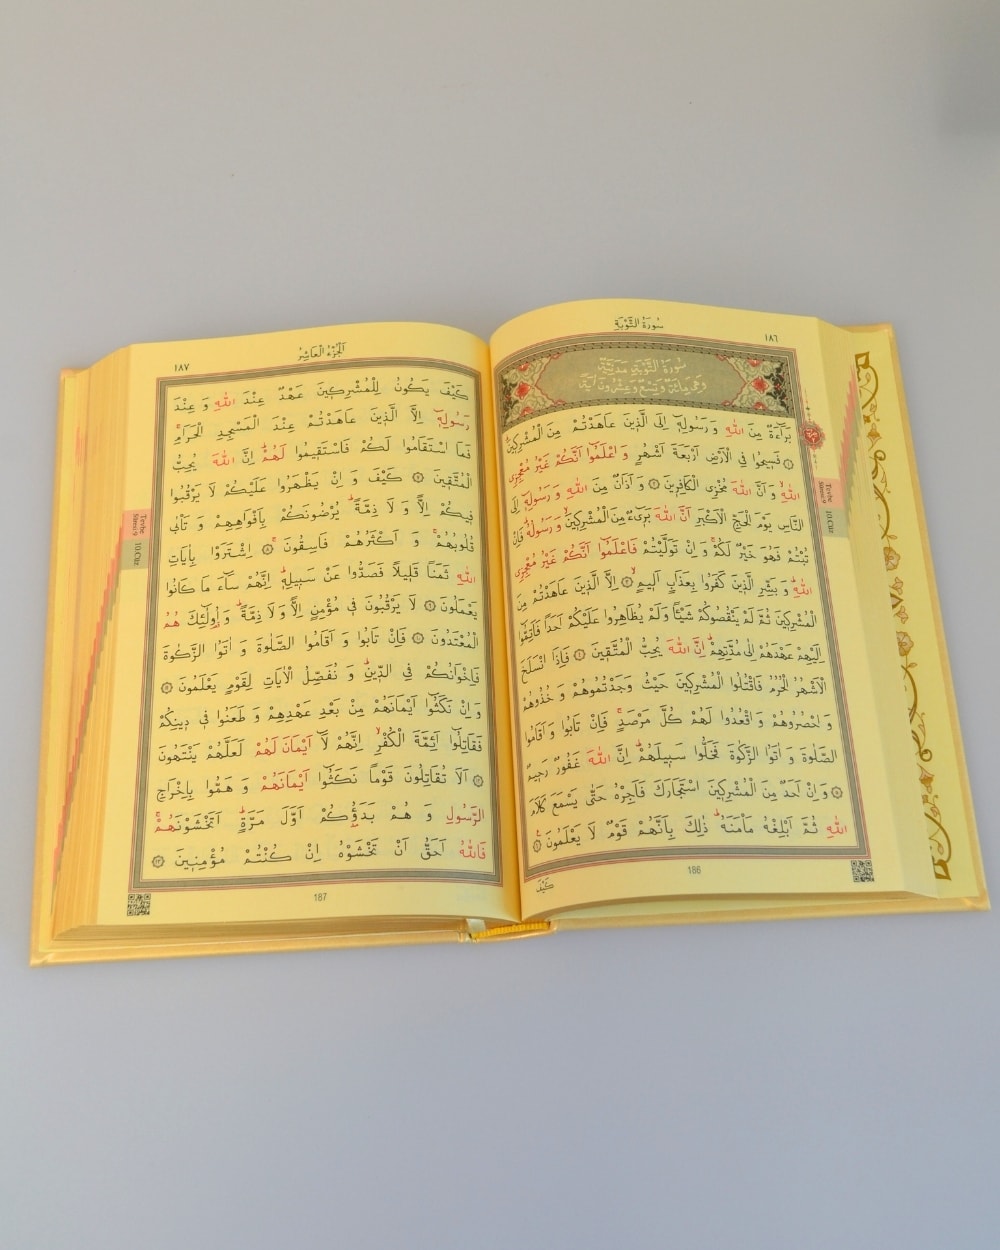 سُورَةُ التَّوْبَةِ
١٨٦
سُورَةُ التَّوْبَةِ مَدَنِيَّةٌ
وَهِيَ مِائَةٌ وَتِسْعٌ وَعِشْرُونَ آيَةً
بَرَٓاءَةٌ مِنَ اللّٰهِ وَ رَسُولِهِٓ اِلَى الَّذٖينَ عَاهَدْتُمْ مِنَ الْمُشْرِكٖينَ
۞ فَسٖيحُوا فِي الْاَرْضِ اَرْبَعَةَ اَشْهُرٍ وَ اعْلَمُٓوا اَنَّكُمْ غَيْرُ مُعْجِزِي
اللّٰهِ وَ اَنَّ اللّٰهَ مُخْزِي الْكَافِرٖينَ ۞ وَ اَذَانٌ مِنَ اللّٰهِ وَ رَسُولِهِٓ اِلَى
النَّاسِ يَوْمَ الْحَجِّ الْاَكْبَرِ اَنَّ اللّٰهَ بَرٖٓيءٌ مِنَ الْمُشْرِكٖينَ وَ رَسُولُهُ فَاِنْ
تُبْتُمْ فَهُوَ خَيْرٌ لَكُمْ وَ اِنْ تَوَلَّيْتُمْ فَاعْلَمُٓوا اَنَّكُمْ غَيْرُ مُعْجِزِي
اللّٰهِ وَ بَشِّرِ الَّذٖينَ كَفَرُوا بِعَذَابٍ اَلٖيمٍ ۞ اِلَّا الَّذٖينَ عَاهَدْتُمْ مِنَ
الْمُشْرِكٖينَ ثُمَّ لَمْ يَنْقُصُوكُمْ شَيْـًٔا وَلَمْ يُظَاهِرُوا عَلَيْكُمْ اَحَدًا فَاَتِمُّٓوا
اِلَيْهِمْ عَهْدَهُمْ اِلٰى مُدَّتِهِمْ اِنَّ اللّٰهَ يُحِبُّ الْمُتَّقٖينَ ۞ فَاِذَا انْسَلَخَ
الْاَشْهُرُ الْحُرُمُ فَاقْتُلُوا الْمُشْرِكٖينَ حَيْثُ وَجَدْتُمُوهُمْ وَ خُذُوهُمْ
وَ احْصُرُوهُمْ وَ اقْعُدُوا لَهُمْ كُلَّ مَرْصَدٍ فَاِنْ تَابُوا وَ اَقَامُوا
الصَّلٰوةَ وَ اٰتَوُا الزَّكٰوةَ فَخَلُّوا سَبٖيلَهُمْ اِنَّ اللّٰهَ غَفُورٌ رَحٖيمٌ
۞ وَ اِنْ اَحَدٌ مِنَ الْمُشْرِكٖينَ اسْتَجَارَكَ فَاَجِرْهُ حَتّٰى يَسْمَعَ كَلَامَ
اللّٰهِ ثُمَّ اَبْلِغْهُ مَاْمَنَهُ ذٰلِكَ بِاَنَّهُمْ قَوْمٌ لَا يَعْلَمُونَ ۞
كَيْفَ
186
Tevbe
Sûresi-9
10.Cüz
اَلْجُزْءُ الْعَاشِرُ
١٨٧
كَيْفَ يَكُونُ لِلْمُشْرِكٖينَ عَهْدٌ عِنْدَ اللّٰهِ وَ عِنْدَ
رَسُولِهِٓ اِلَّا الَّذٖينَ عَاهَدْتُمْ عِنْدَ الْمَسْجِدِ الْحَرَامِ
فَمَا اسْتَقَامُوا لَكُمْ فَاسْتَقٖيمُوا لَهُمْ اِنَّ اللّٰهَ يُحِبُّ
الْمُتَّقٖينَ ۞ كَيْفَ وَ اِنْ يَظْهَرُوا عَلَيْكُمْ لَا يَرْقُبُوا
فٖيكُمْ اِلًّا وَ لَا ذِمَّةً يُرْضُونَكُمْ بِاَفْوَاهِهِمْ وَ تَاْبٰى
قُلُوبُهُمْ وَ اَكْثَرُهُمْ فَاسِقُونَ ۞ اِشْتَرَوْا بِاٰيَاتِ
اللّٰهِ ثَمَنًا قَلٖيلًا فَصَدُّوا عَنْ سَبٖيلِهٖ اِنَّهُمْ سَٓاءَ مَا كَانُوا
يَعْمَلُونَ ۞ لَا يَرْقُبُونَ فٖي مُؤْمِنٍ اِلًّا وَ لَا ذِمَّةً وَ اُولٰٓئِكَ هُمُ
الْمُعْتَدُونَ ۞ فَاِنْ تَابُوا وَ اَقَامُوا الصَّلٰوةَ وَ اٰتَوُا الزَّكٰوةَ
فَاِخْوَانُكُمْ فِي الدّٖينِ وَ نُفَصِّلُ الْاٰيَاتِ لِقَوْمٍ يَعْلَمُونَ ۞
وَ اِنْ نَكَثُٓوا اَيْمَانَهُمْ مِنْ بَعْدِ عَهْدِهِمْ وَ طَعَنُوا فٖي دٖينِكُمْ
فَقَاتِلُٓوا اَئِمَّةَ الْكُفْرِ اِنَّهُمْ لَٓا اَيْمَانَ لَهُمْ لَعَلَّهُمْ يَنْتَهُونَ
۞ اَلَا تُقَاتِلُونَ قَوْمًا نَكَثُٓوا اَيْمَانَهُمْ وَ هَمُّوا بِاِخْرَاجِ
الرَّسُولِ وَ هُمْ بَدَؤُكُمْ اَوَّلَ مَرَّةٍ اَتَخْشَوْنَهُمْ
فَاللّٰهُ اَحَقُّ اَنْ تَخْشَوْهُ اِنْ كُنْتُمْ مُؤْمِنٖينَ ۞
187
Tevbe
Sûresi-9
10.Cüz